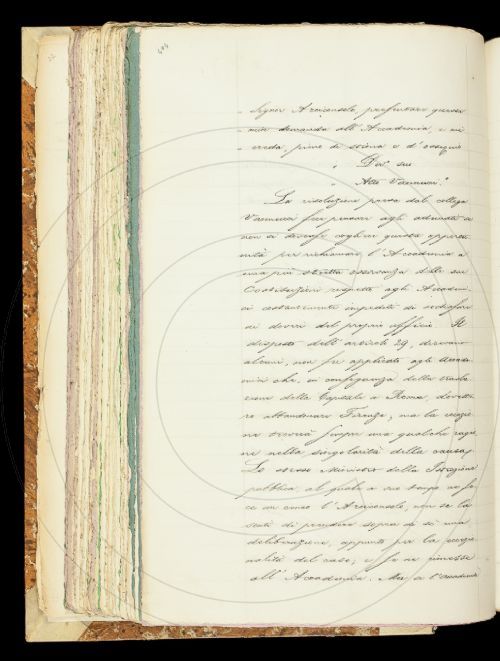 494
„ Signor Arciconsole, presentare questa
„ mia domanda all'Accademia, e mi
„ creda, pieno di stima e d'ossequio
„ Dev.° suo
„ Atto Vannucci."
La risoluzione presa dal collega
Vannucci fu agli adunati e
non si cogliere questa opportu
nità per richiamare l'Accademia a
una più stretta osservanza delle sue
Costituzioni rispetto agli Accademi
ci costantemente impediti di sodisfare
ai doveri del proprio ufficio. Il
disposto dell'articolo 29, dicevano
alcuni, non fu applicato agli Accade
mici che, in conseguenza della trasla
zione della Capitale a Roma, dovette
ro abbandonare Firenze; ma la
ne troverà sempre una qualche ragio
ne nella singolarità della causa.
Lo stesso Ministro della Istruzione
pubblica, al quale a suo tempo ne fe
ce un cenno l'Arciconsole, non se la
sentì di prendere sopra di sé una
deliberazione, appunto per la eccezio
nalità del caso; e se ne rimesse
all'Accademia. Ma a l'